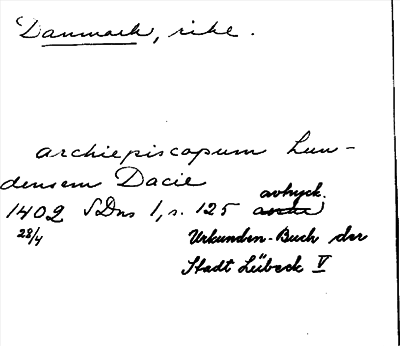 Danmark, rike.
archiepiscopum Lun-
densem Dacie
avtryck.
1402 SDns 1, s. 125
28/4
Urkunden-Buch der
Stadt Lübeck V